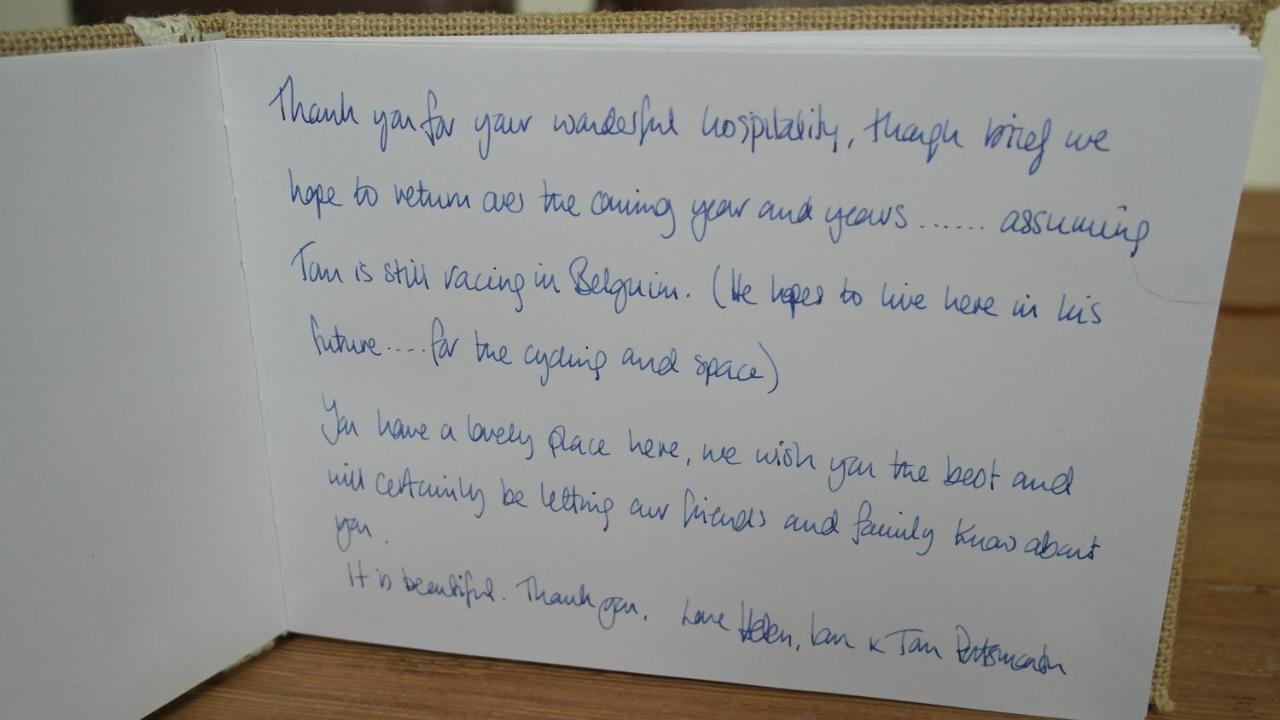 Thank you for your wonderful hospitality, though brief we
hope to return over the coming year and years ...... assuming
Tom is still racing in Belguim. (He hopes to live here in his
future .... for the cycling and space)
You have a lovely place here, we wish you the best and
will certainly be letting our friends and family know about
you.
It is beautiful. Thank you. Love Helen, Ian & Tom Portsmouth